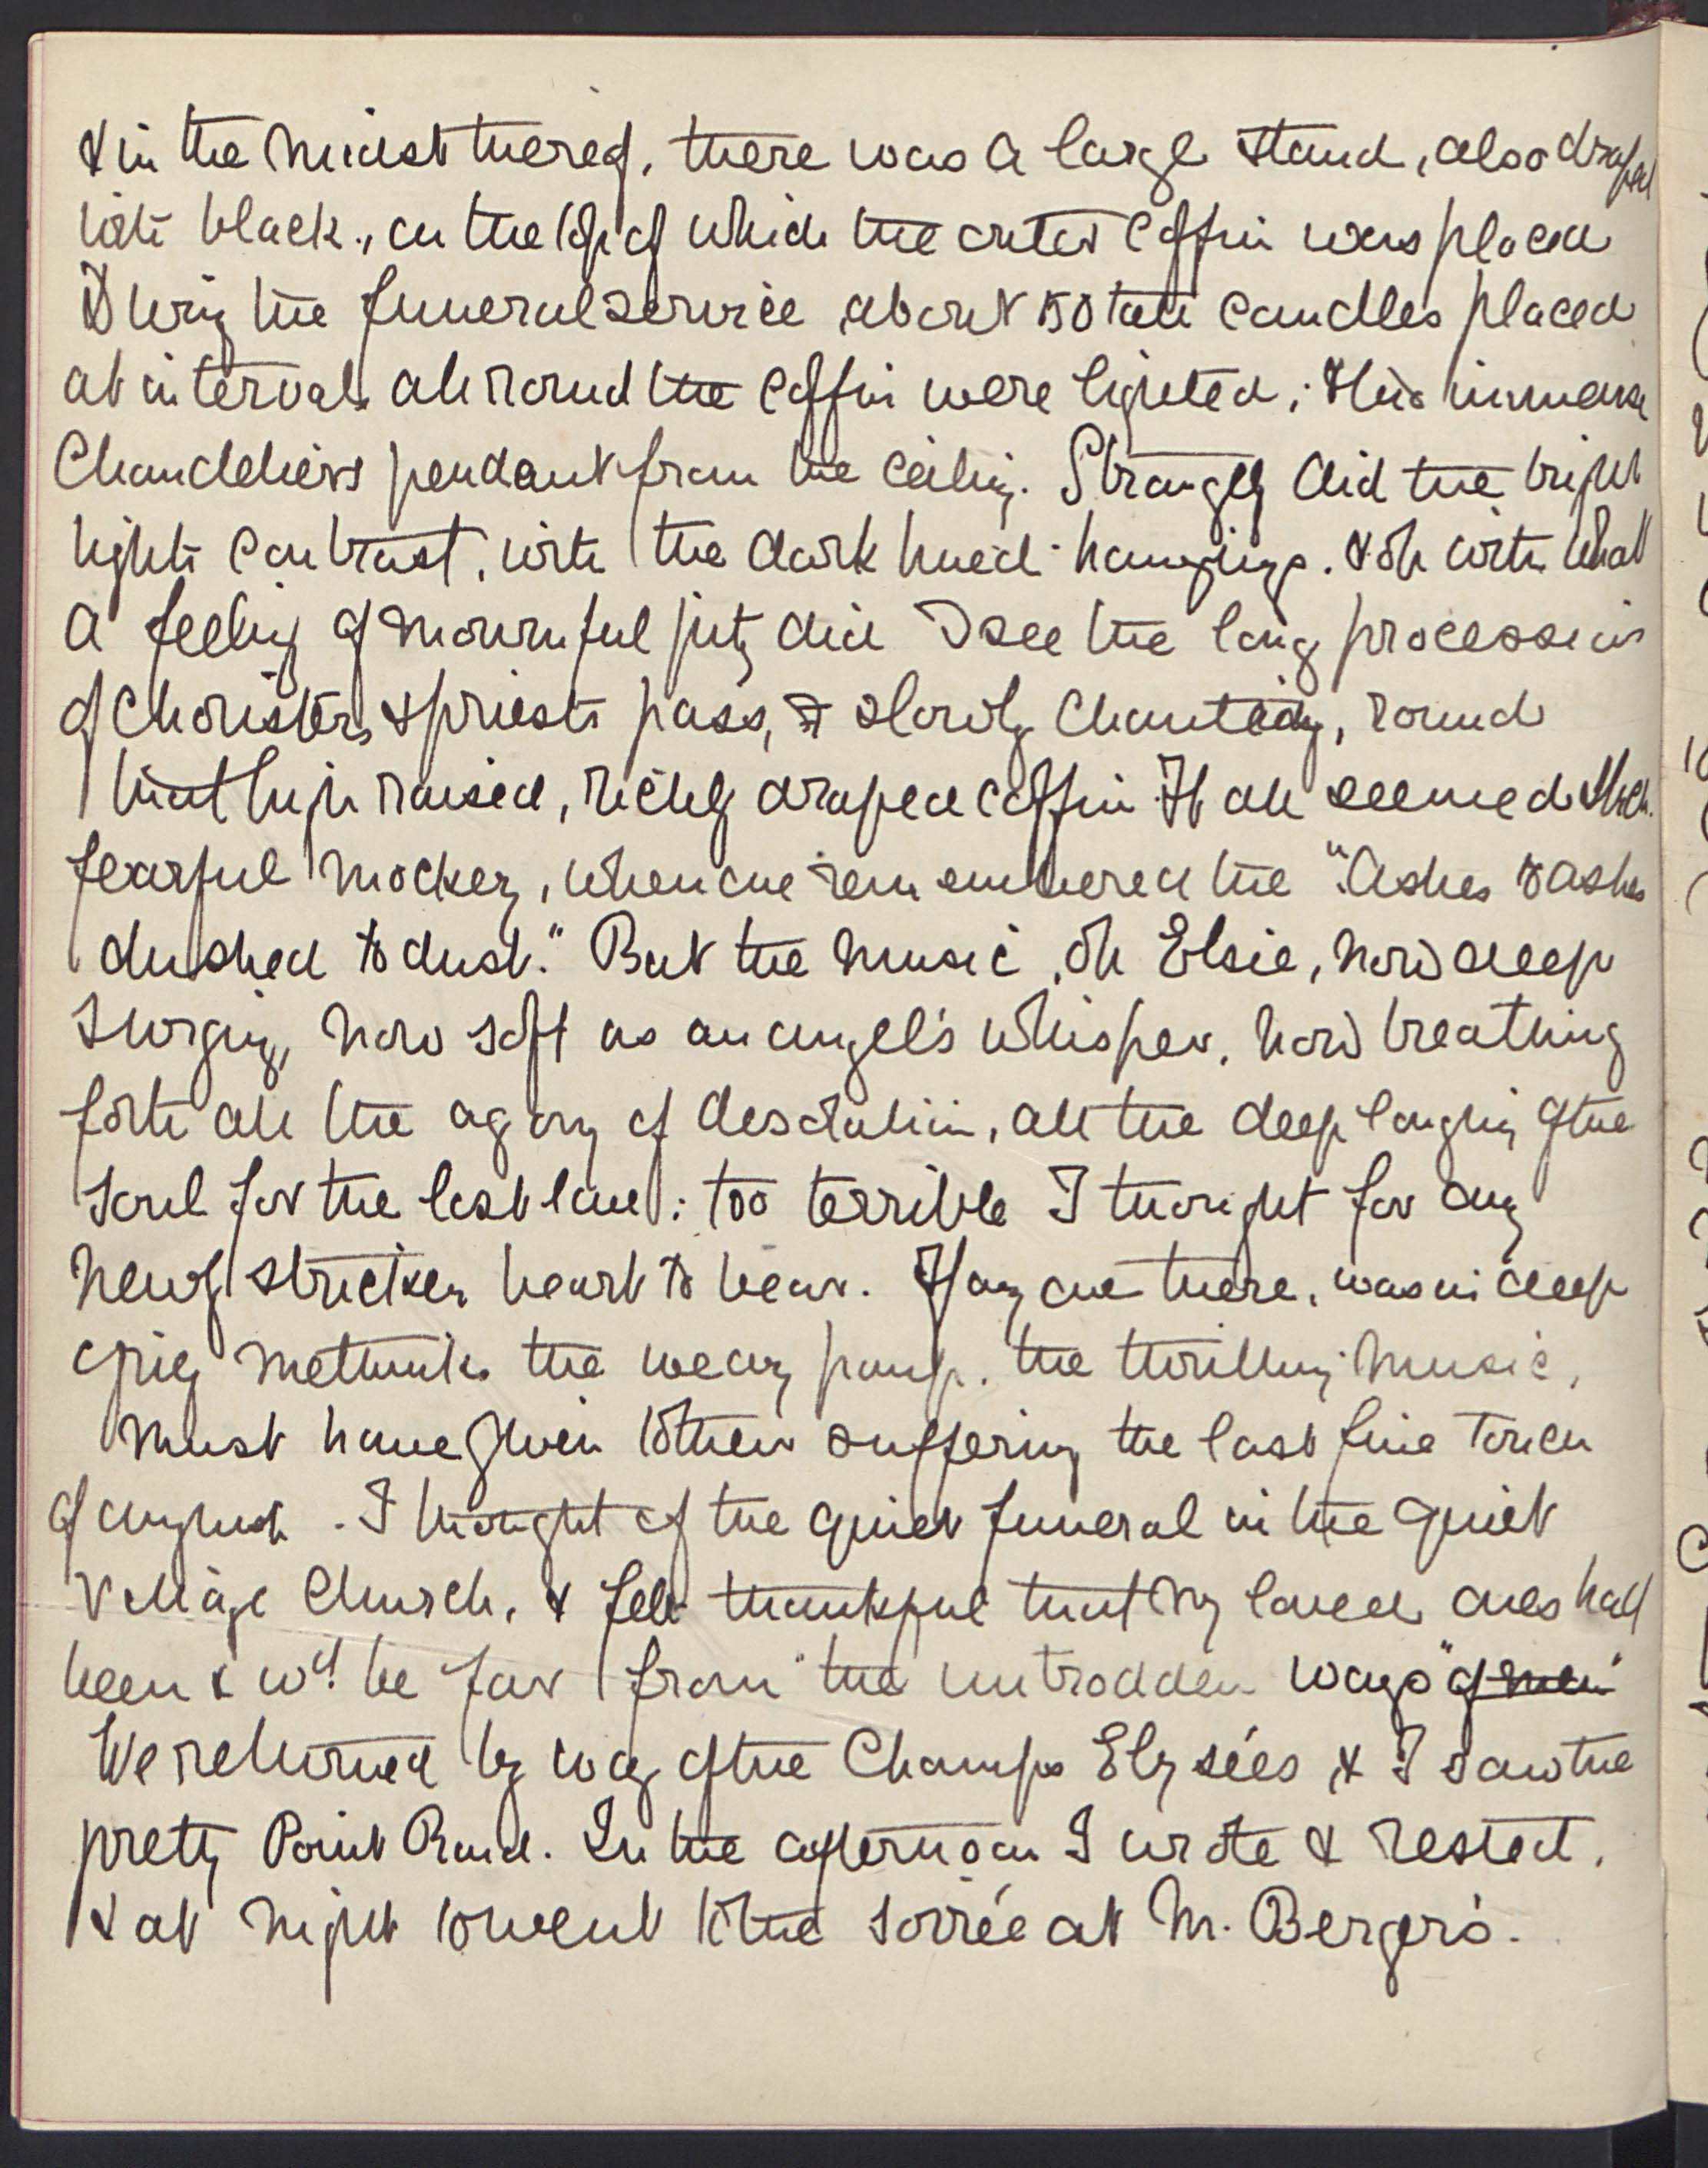 & in the midst thereof, there was a large stand, also draped
with black, on the top of which the outer coffin was placed
During the funeral service about 150 tall candles placed
at intervals all round the coffin were lighted; & the immense
Chandeliers pendant from the ceiling. Strangely did the bright
lights contrast, with the dark hued hangings. & oh with what
a feeling of mournful pity did I see the long procession
of Choristers & priests pass, slowly Chanting, round
that high raised, richly draped coffin. It all seemed such
fearful mockery, when one remembered the "Ashes to ashes
to dust." But the music, oh Elsie, now deep
surging, now soft as an angel's whisper, now breathing
forth all the agony of desolation, all the deep longing of the
soul for the lost love: too terrible I thought for any
newly stricken heart to hear. If any one there, was in deep
grief methinks the weary pomp, the thrilling music,
must have given to their suffering the last fine touch
of anguish. I thought of the quiet funeral in the quiet
Village Church, & felt thankful that my loved ones had
been & wd. be far from "the untrodden ways" of men
We returned by way of the Champs Elysées, & I saw the
pretty Point Rond. In the afternoon I wrote & rested,
& at night to went to the soirée at M. Berger's.